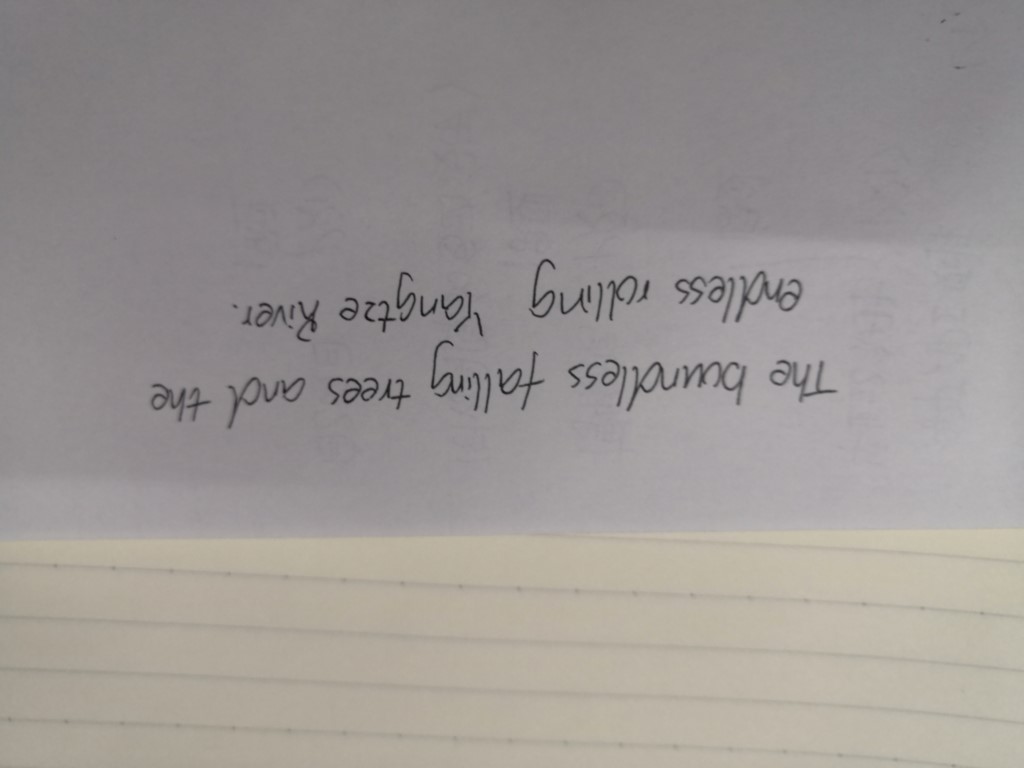 The boundless falling trees and the
endless rolling Yangtze River.